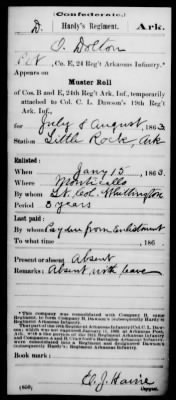 (Confederate.)
D. Hardy's Regiment. Ark.
O. Dolton
Pvt, Co. E, 24 Reg't Arkansas Infantry.*
Appears on
Muster Roll
of Cos. B and E, 24th Reg't Ark. Inf., temporarily
attached to Col. C. L. Dawson's 19th Reg't
Ark. Inf.,
for July & August, 1863
Station Little Rock, Ark
Enlisted:
When Jany 15, 1863.
Where Monticello
By whom Lt. Col. Whittington
Period 3 years
Last paid:
By whom Pay due from Enlistment
To what time , 186 .
Present or absent Absent
Remarks: Absent with leave
*This company was consolidated with Company
Book mark:
(860) Copyist.